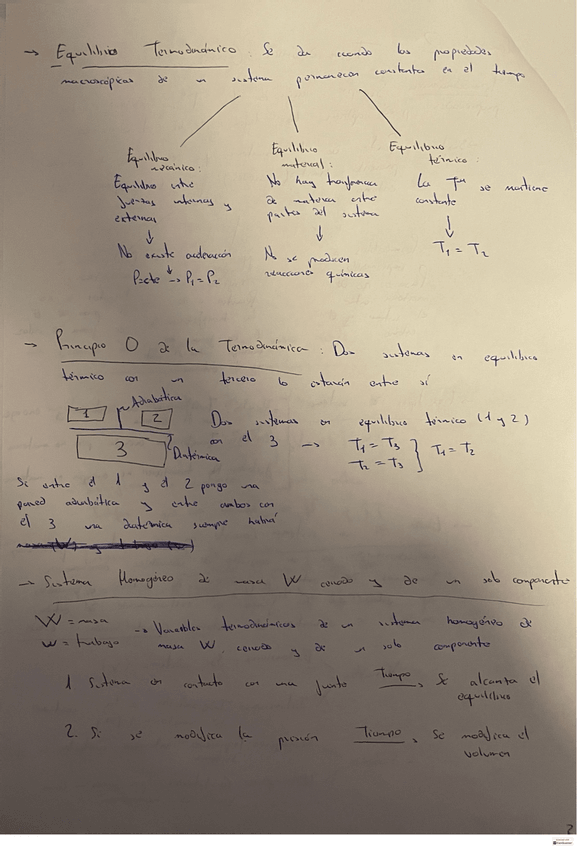 → Equilibrio Termodinámico: Se da cuando las propiedades
macroscópicas de un sistema permanecen constantes en el tiempo
Equilibrio
mecánico:
Equilibrio entre
fuerzas internas y
externas
↓
No existe aceleración
↓
P=cte → P₁ = P₂
Equilibrio
material:
No hay transferencia
de materia entre
partes del sistema
↓
No se producen
reacciones químicas
Equilibrio
térmico:
La Tª se mantiene
constante
↓
T₁ = T₂
→ Principio 0 de la Termodinámica: Dos sistemas en equilibrio
térmico con un tercero lo estarán entre sí
Adiabática
1
2
3
Diatérmica
Dos sistemas en equilibrio térmico (1 y 2)
con el 3 → T₁ = T₃
T₂ = T₃
} T₁ = T₂
Si entre el 1 y el 2 pongo una
pared adiabática y entre ambos con
el 3 una diatérmica siempre habrá
→ Sistema Homogéneo de masa W cerrado y de un solo componente
W = masa
w = trabajo
→ Variables termodinámicas de un sistema homogéneo de
masa W, cerrado y de un solo componente
1 Sistema en contacto con una fuente Tiempo, Se alcanza el
equilibrio
2. Si se modifica la presión Tiempo, Se modifica el
volumen